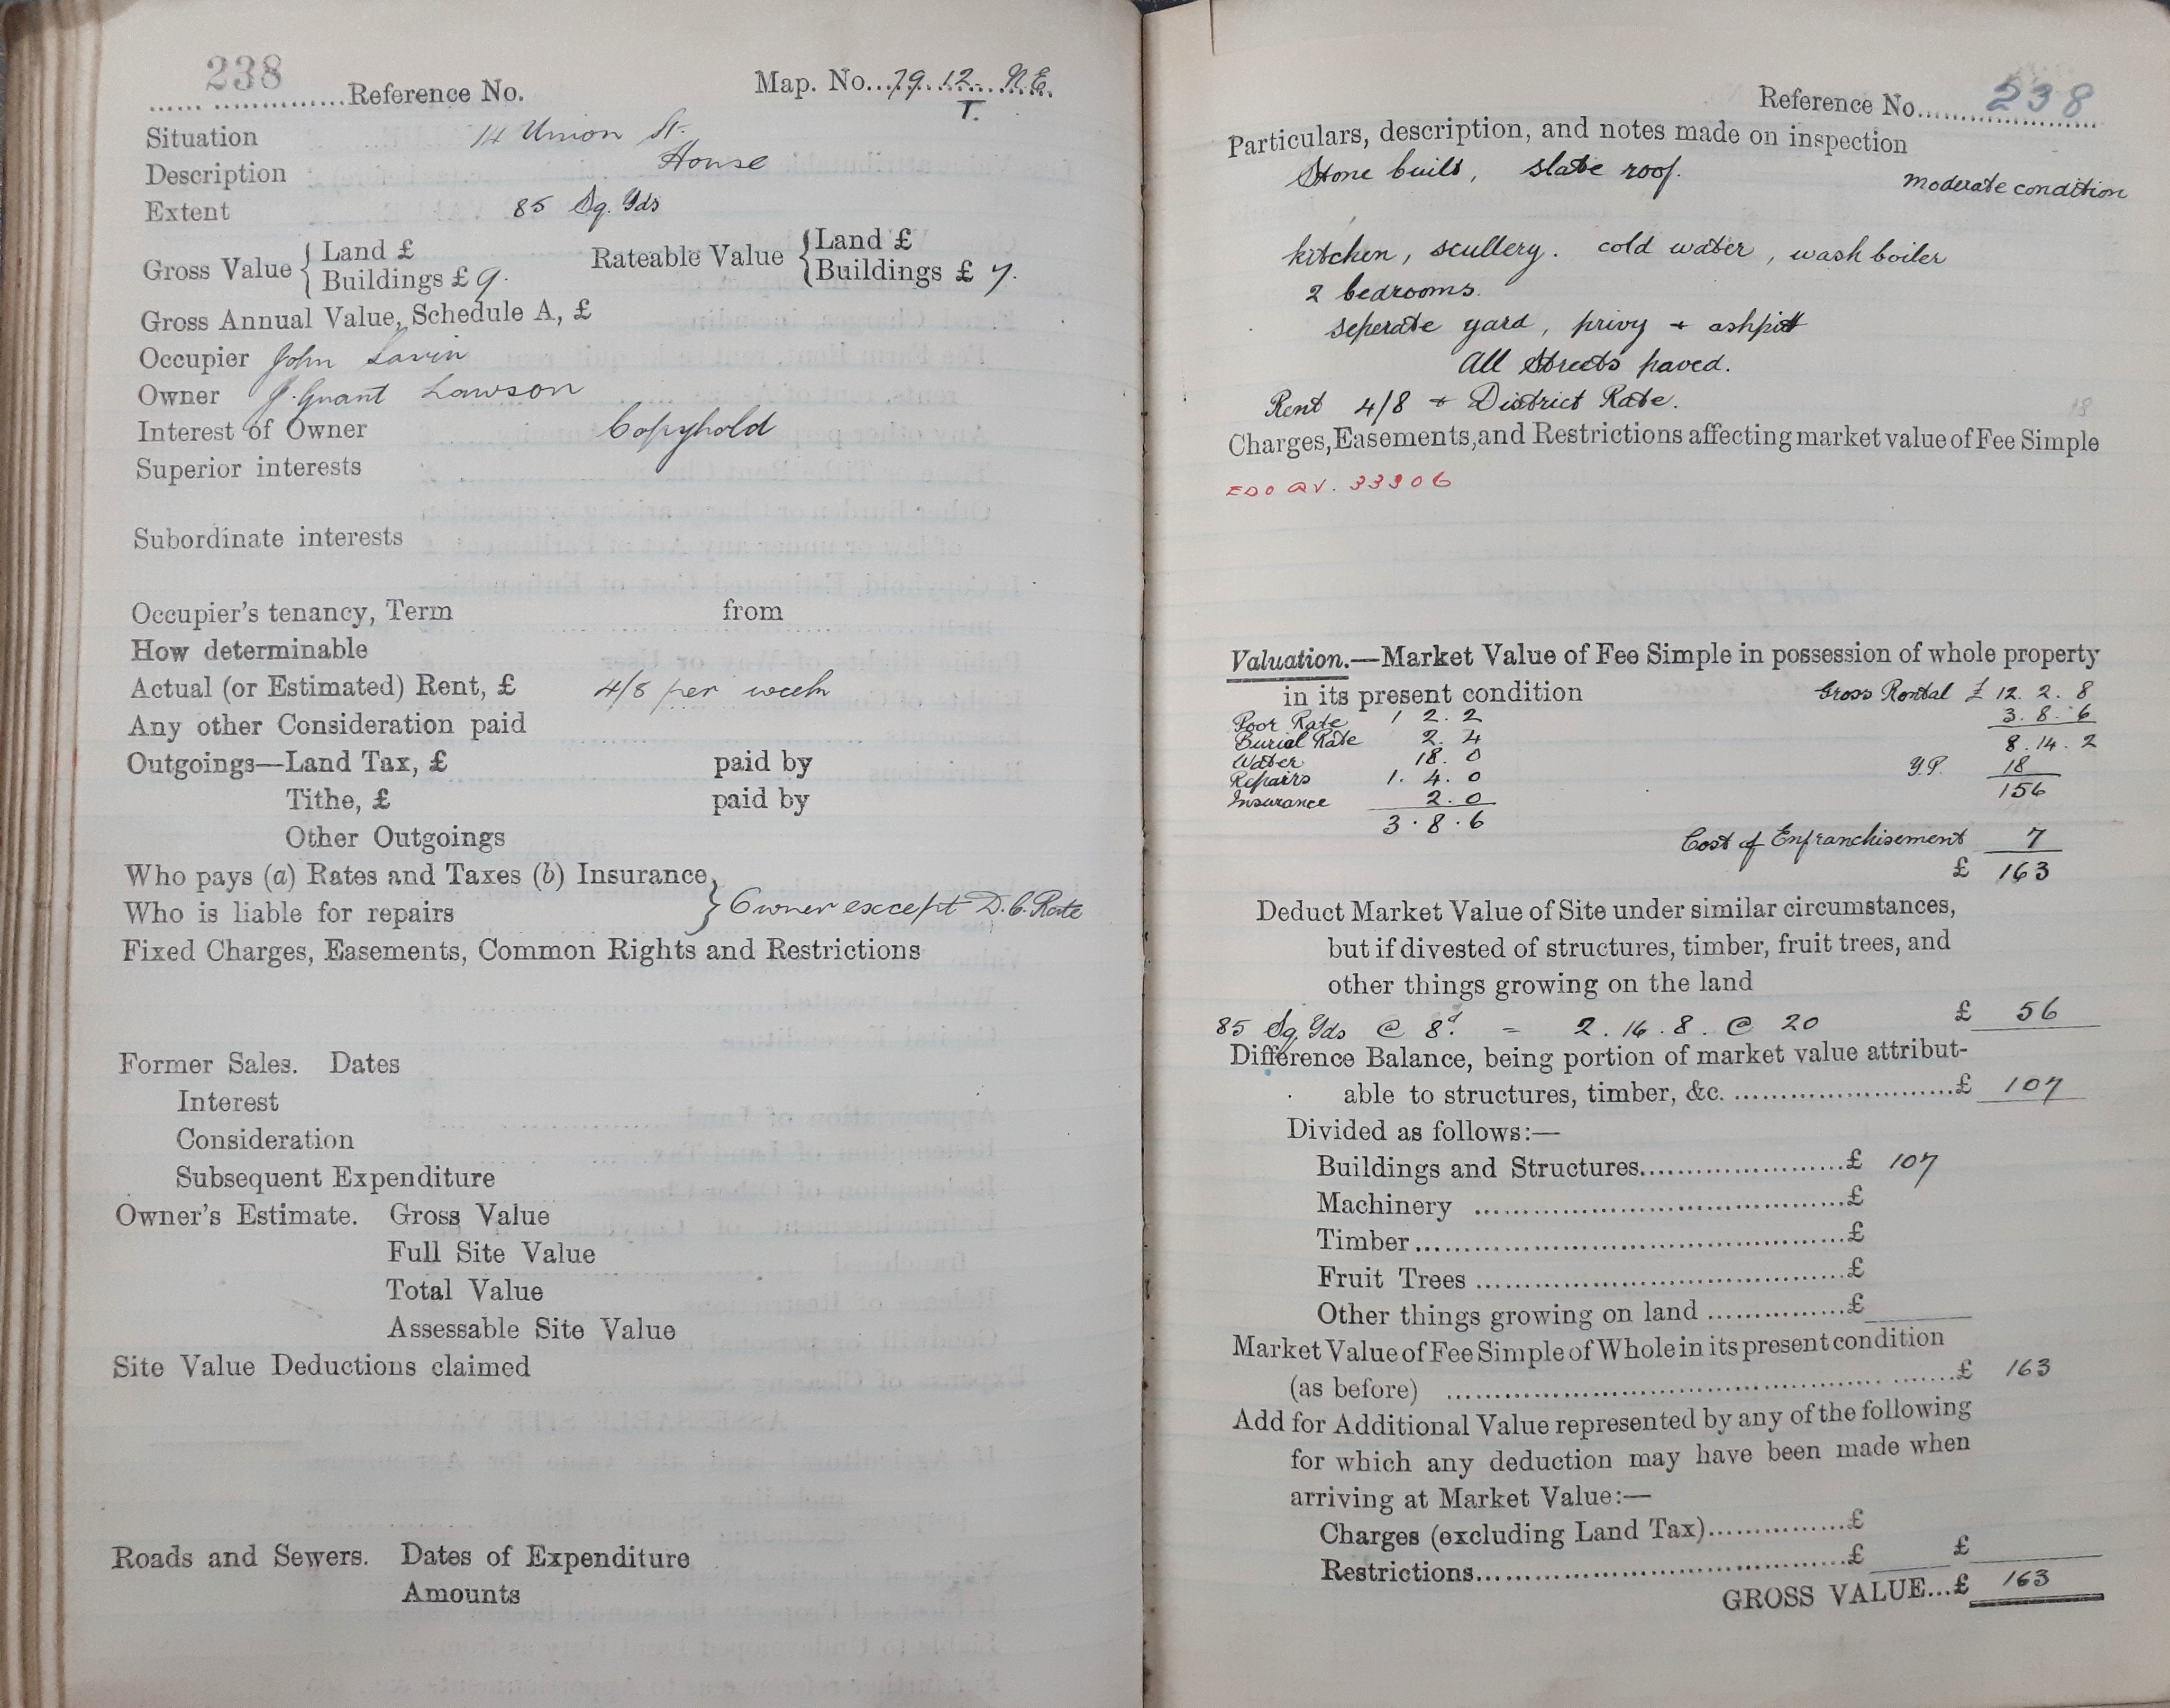 238 Reference No. Map. No. 79. 12. N.E.
T.
Situation 14 Union St.
Description House
Extent 85 Sq. Yds
Gross Value { Land £ Rateable Value { Land £
Buildings £ 9. Buildings £ 7.
Gross Annual Value, Schedule A, £
Occupier John Lavin
Owner J. Grant Lawson
Interest of Owner Copyhold
Superior interests
Subordinate interests
Occupier's tenancy, Term from
How determinable
Actual (or Estimated) Rent, £ 4/8 per week
Any other Consideration paid
Outgoings—Land Tax, £ paid by
Tithe, £ paid by
Other Outgoings
Who pays (a) Rates and Taxes (b) Insurance,
Who is liable for repairs } Owner except D.C. Rate
Fixed Charges, Easements, Common Rights and Restrictions
Former Sales. Dates
Interest
Consideration
Subsequent Expenditure
Owner's Estimate. Gross Value
Full Site Value
Total Value
Assessable Site Value
Site Value Deductions claimed
Roads and Sewers. Dates of Expenditure
Amounts
Reference No. 238
Particulars, description, and notes made on inspection
Stone built, slate roof. moderate condition
kitchen, scullery. cold water, wash boiler
2 bedrooms.
seperate yard, privy + ashpitt
All Streets paved.
Rent 4/8 + District Rate.
Charges, Easements, and Restrictions affecting market value of Fee Simple
EDO QV. 33906
Valuation.—Market Value of Fee Simple in possession of whole property
in its present condition Gross Rental £ 12. 2. 8
Poor Rate 1 2. 2 3. 8. 6
Burial Rate 2. 4 8. 14. 2
Water 18. 0 Y.P. 18
Repairs 1. 4. 0 156
Insurance 2. 0
3. 8. 6
Cost of Enfranchisement 7
£ 163
Deduct Market Value of Site under similar circumstances,
but if divested of structures, timber, fruit trees, and
other things growing on the land
85 Sq. Yds @ 8d. = 2. 16. 8. @ 20 £ 56
Difference Balance, being portion of market value attribut-
able to structures, timber, &c. £ 107
Divided as follows:—
Buildings and Structures £ 107
Machinery £
Timber £
Fruit Trees £
Other things growing on land £
Market Value of Fee Simple of Whole in its present condition
(as before) £ 163
Add for Additional Value represented by any of the following
for which any deduction may have been made when
arriving at Market Value:—
Charges (excluding Land Tax) £
Restrictions £ £
GROSS VALUE...£ 163